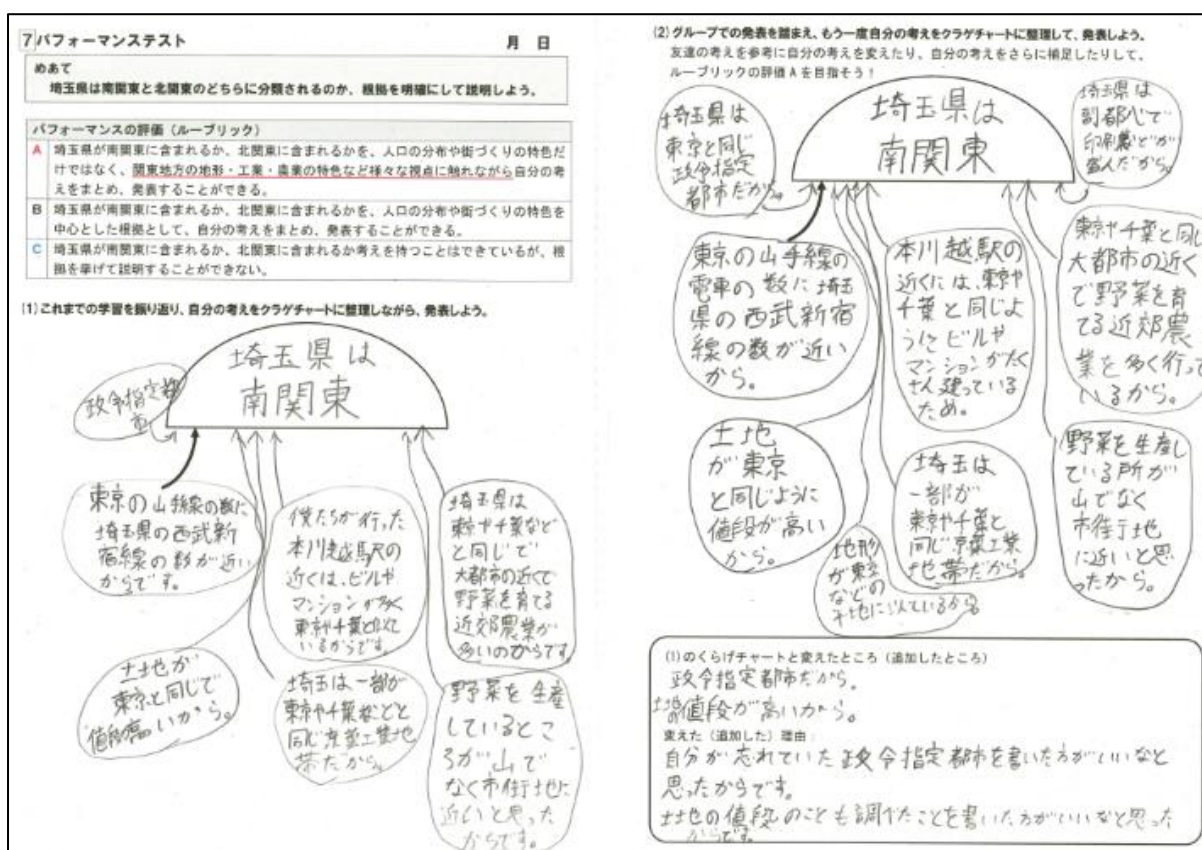 7 パフォーマンステスト
月 日
めあて
埼玉県は南関東と北関東のどちらに分類されるのか、根拠を明確にして説明しよう。
パフォーマンスの評価（ルーブリック）
A 埼玉県が南関東に含まれるか、北関東に含まれるかを、人口の分布や街づくりの特色だ
けではなく、関東地方の地形・工業・農業の特色など様々な視点に触れながら自分の考
えをまとめ、発表することができる。
B 埼玉県が南関東に含まれるか、北関東に含まれるかを、人口の分布や街づくりの特色を
中心とした根拠として、自分の考えをまとめ、発表することができる。
C 埼玉県が南関東に含まれるか、北関東に含まれるか考えを持つことはできているが、根
拠を挙げて説明することができない。
(1)これまでの学習を振り返り、自分の考えをクラゲチャートに整理しながら、発表しよう。
埼玉県は
南関東
政令指定都
市
東京の山手線の数に
埼玉県の西武新
宿線の数が近い
からです。
僕たちが行った
本川越駅の
近くは、ビルや
マンションが多く
東京や千葉と似て
いるからです。
埼玉県は
東京や千葉などと
と同じで
大都市の近くで
野菜を育てる
近郊農業が
多いのからです。
土地が
東京と同じで
値段高いから。
埼玉は一部が
東京や千葉などと
同じ京葉工業地
帯だから。
野菜を生産
しているとこ
ろが山で
なく市街地に
近いと思った
からです。
(2)グループでの発表を踏まえ、もう一度自分の考えをクラゲチャートに整理して、発表しよう。
友達の考えを参考に自分の考えを変えたり、自分の考えをさらに補足したりして、
ルーブリックの評価Aを目指そう！
埼玉県は
南関東
埼玉県は
東京と同じ
政令指定
都市だから。
埼玉県は
副都心で
印刷業などが
盛んだから。
東京の山手線の
電車の数に埼玉
県の西武新宿
線の数が近い
から。
本川越駅の
近くには、東京や
千葉と同じよ
うにビルや
マンションがたく
さん建っている
ため。
東京や千葉と同じ
大都市の近く
で野菜を育
てる近郊農
業を多く行って
いるから。
土地
が東京
と同じように
値段が高い
から。
地形
が東京
などの
平地に似ているから。
埼玉は
一部が
東京や千葉と
同じ京葉工業
地帯だから。
野菜を生産し
ている所が
山でなく
市街地
に近いと思
ったから。
(1)のくらげチャートと変えたところ（追加したところ）
政令指定都市だから。
土地の値段が高いから。
変えた（追加した）理由：
自分が忘れていた政令指定都市を書いた方がいいなと
思ったからです。
土地の値段のことも調べたことを書いた方がいいなと思った
からです。